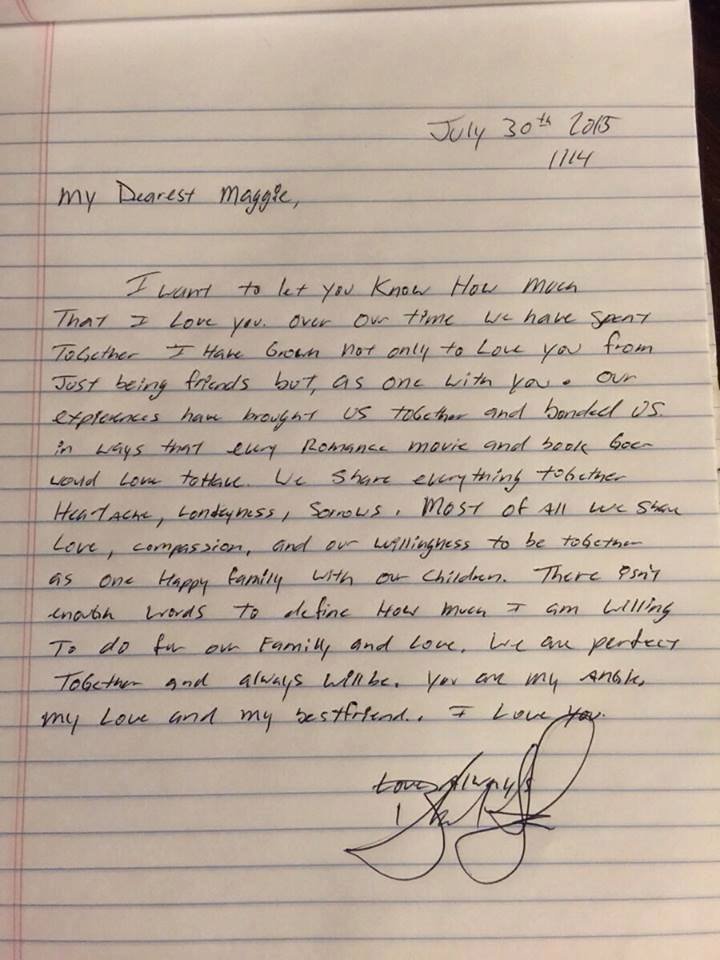 July 30th 2015
1114
My Dearest Maggie,
I want to let you Know How much
That I Love you. over our time we have spent
Together I Have Grown not only to Love you from
Just being friends but, as one with you. our
experences have brought us together and bonded us.
in ways that every Romance movie and book Goer
would Love toHave. We share everything together
HeartAche, Lonleyness, Sorrows. Most of All we share
Love, compassion, and our willingness to be together
as one Happy family with our children. There isn't
enough words to define How much I am willing
To do for our Family and Love. We are perfect
Together and always will be. you are my Angle,
my Love and my bestfriend.. I Love you.
Love Always